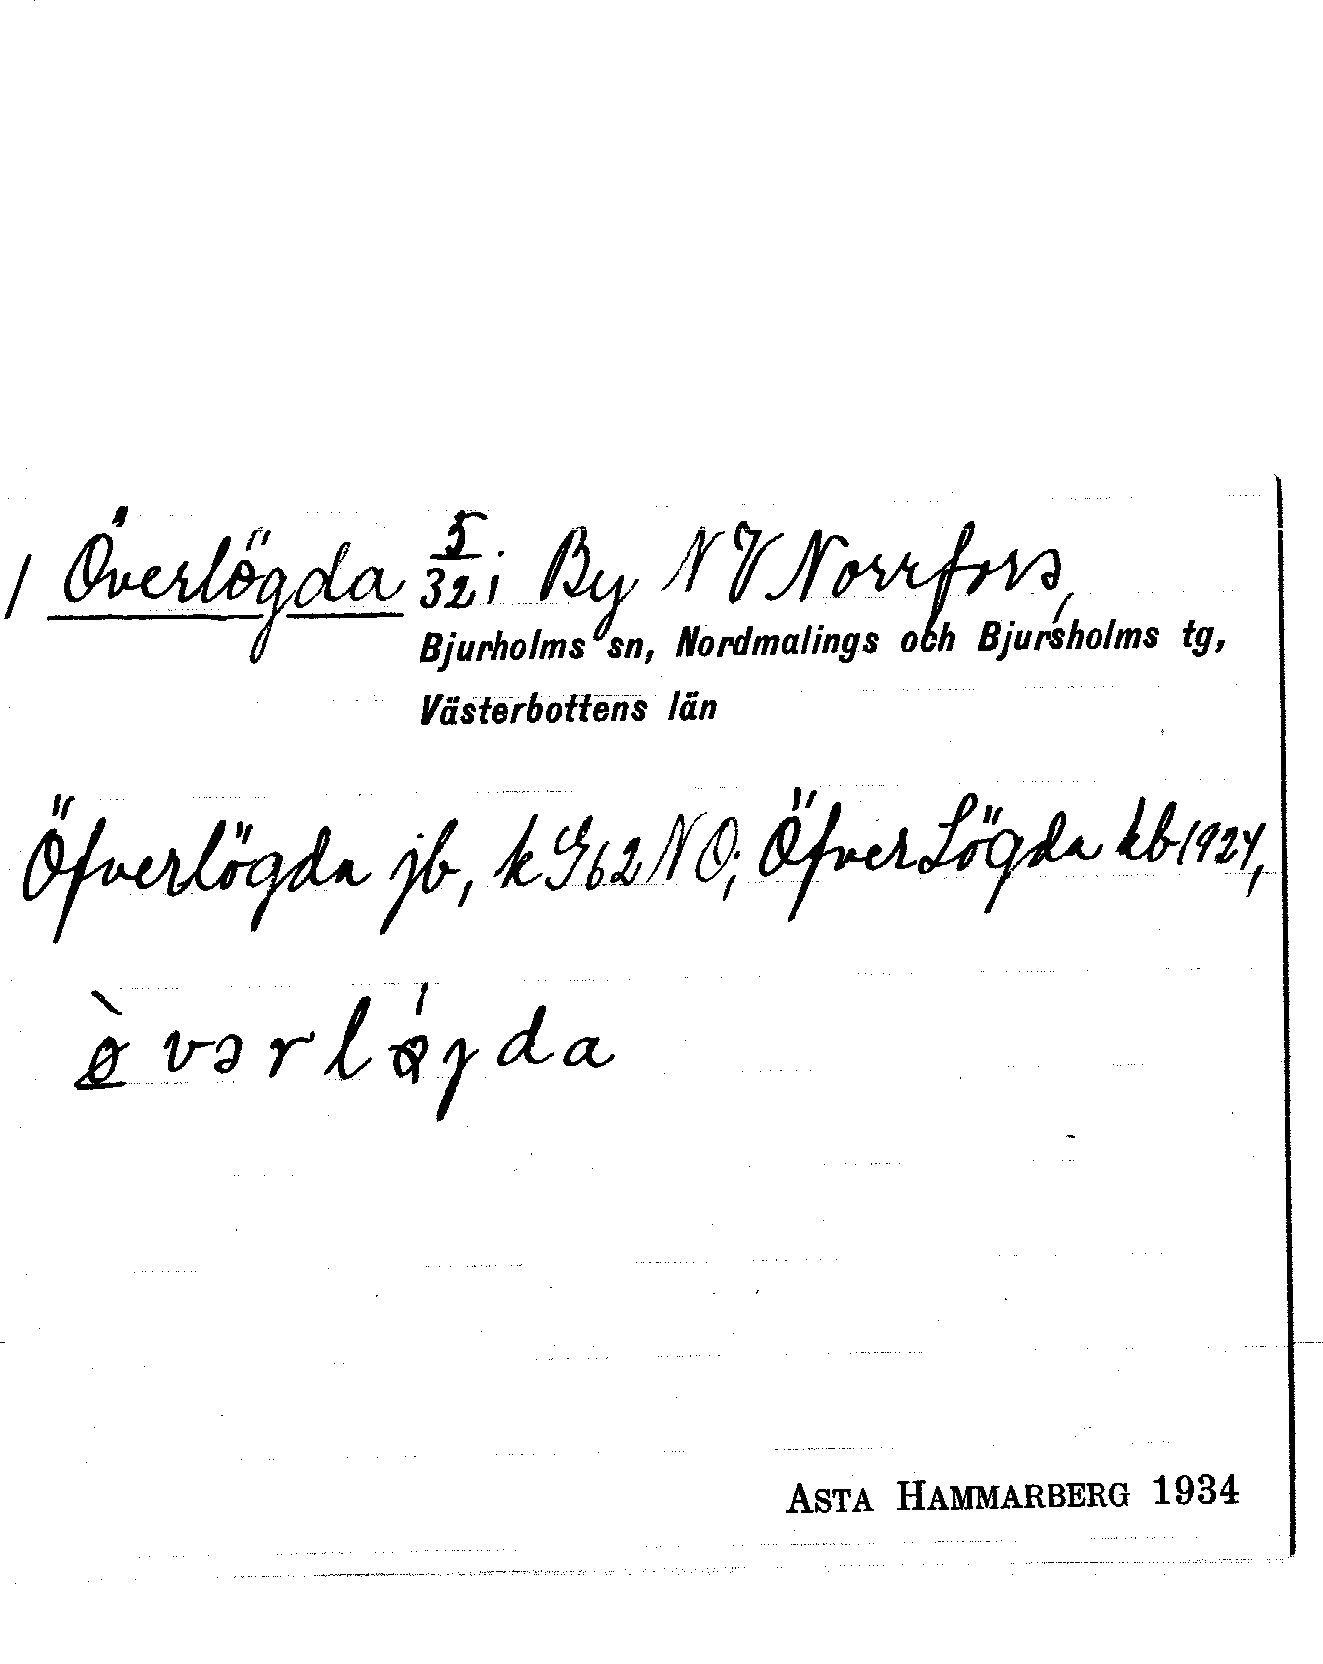 / Överlögda 5/32; By NV Norrfors,
Bjurholms sn, Nordmalings och Bjursholms tg,
Västerbottens län
Öfverlögda jb, k G62NO; Öfver Lögda kb 1924,
ø̀vərlǿgda
ASTA HAMMARBERG 1934